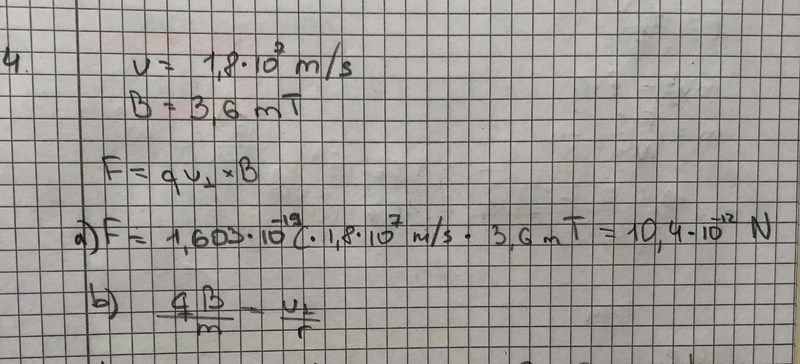 4. v = 1,8·10⁷ m/s
B = 3,6 mT
F = q v⊥ × B
a) F = 1,603·10⁻¹⁹ C · 1,8·10⁷ m/s · 3,6 mT = 10,4·10⁻¹² N
b) qB/m = v⊥/r